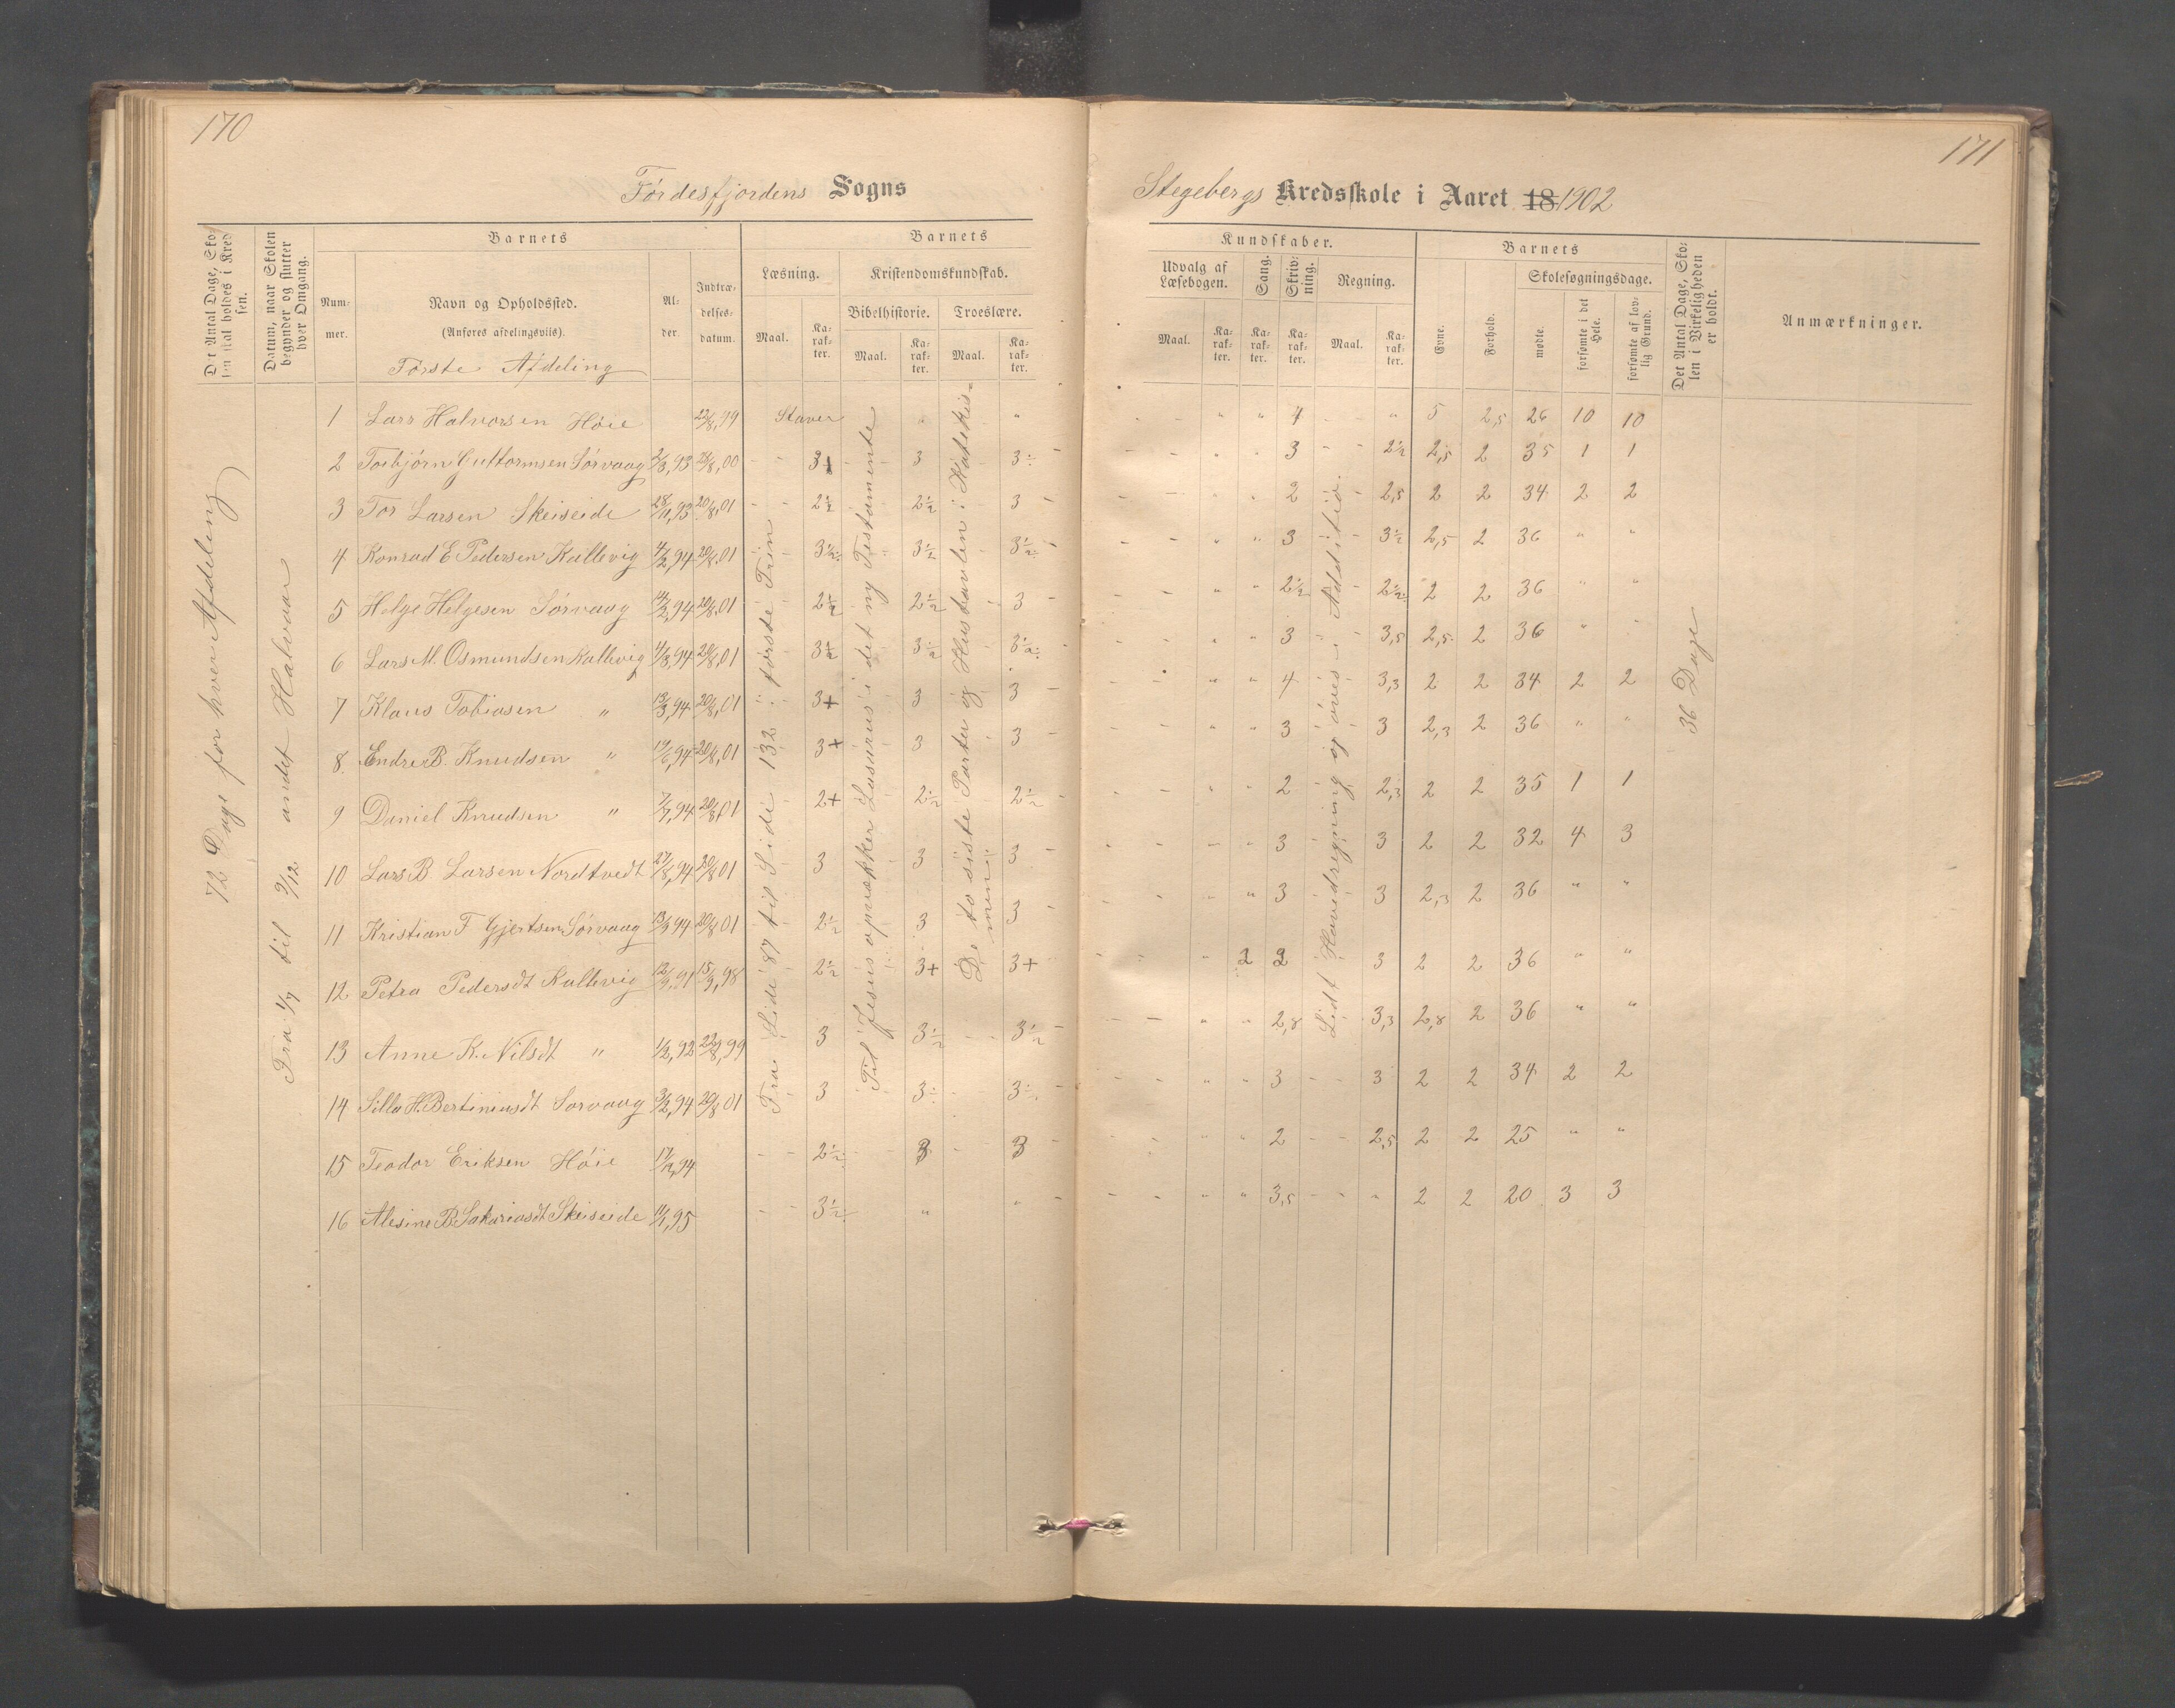 170
171
Fördesfjordens Sogns
Stegebergs Kredsskole i Aaret 18 1902
Det Antal Dage, Skolen skal holdes i Kredsen.
Datum, naar Skolen begynder og slutter hver Omgang.
Barnets
Barnets
Kundskaber.
Barnets
Det Antal Dage, Skolen i Virkeligheden er holdt.
Anmærkninger.
Nummer.
Navn og Opholdssted.
(Anføres afdelingsviis).
Alder.
Indtrædelsesdatum.
Læsning.
Kristendomskundskab.
Bibelhistorie. Troeslære.
Udvalg af Læsebogen.
Sang.
Skrivning.
Regning.
Evne.
Forhold.
Skolesøgningsdage.
mødte.
forsømte i det Hele.
forsømte af lovlig Grund.
Maal. Karakter. Maal. Karakter. Maal. Karakter.
Maal. Karakter. Karakter. Karakter. Maal. Karakter.
Første Afdeling
72 Dage for hver Afdeling
Fra 1/7 til 9/12 andet Halvaar
Fra Side 87 til Side 132 i første Trin
Til Jesus opvækker Lasarus i det ny Testamente
De to siste Parter og Hustavlen i Katekismen
Lidt Hovedregning og øves i Additio.
36 Dage
1 Lars Halvorsen Höie 22/8,99 Staver " " " " 4 " 5 2,5 26 10 10
2 Torbjörn Guttormsen Sörvaag 2/3,93 28/8,00 3+ 3 3÷ " " 3 2½ 2,5 2 35 1 1
3 Tor Larsen Skeiseide 28/11,93 20/8,01 2½ 2½ 3 " " 2 2,5 2 2 34 2 2
4 Konrad E Pedersen Kallevig 4/2,94 20/8,01 3½÷ 3½ 3½÷ " " 3 3½ 2,5 2 36 " "
5 Helge Helgesen Sörvaag 14/2,94 20/8,01 2½ 2½ 3 " " 2½ 2½÷ 2 2 36 " "
6 Lars M. Osmundsen Kallevig 4/3,94 20/8,01 3½ 3½ 3½÷ " " 3 3,5 2,5 2 36 " "
7 Klaus Tobiasen " 13/3,94 20/8,01 3+ 3 3 " " 4 3,3 2 2 34 2 2
8 Endre B. Knudsen " 19/6,94 20/8,01 3+ 3 3 " " 3 3 2,3 2 36 " "
9 Daniel Knudsen " 7/7,94 20/8,01 2+ 2½ 2½ " " 2 2,3 2 2 35 1 1
10 Lars B Larsen Nordtvedt 27/8,94 20/8 01 3 3 3 " " 3 3 2 2 32 4 3
11 Kristian F Gjertsen Sörvaag 13/9 94 20/8 01 2½ 3 3 " 3 3 2,3 2 36 " "
12 Petra Pedersdt Kallevig 12/3,91 15/9,98 2½ 3+ 3+ " 2 2 3 2 2 36 " "
13 Anne K. Nilsdt " 1/2,92 22/8,99 3 3½ 3½ " " 2,8 3,3 2,8 2 36 " "
14 Silla H. Bertiniusdt Sørvaag 3/2,94 20/8 01 3 3÷ 3÷ " " 3 3 2 2 34 2 2
15 Teodor Eriksen Höie 17/12,94 2½÷ 3 3 " " 2 2,5 2 2 25 " "
16 Alesine B Sakariasdt Skeiseide 11/1,95 3½ " " " " 3,5 " 2 2 20 3 3